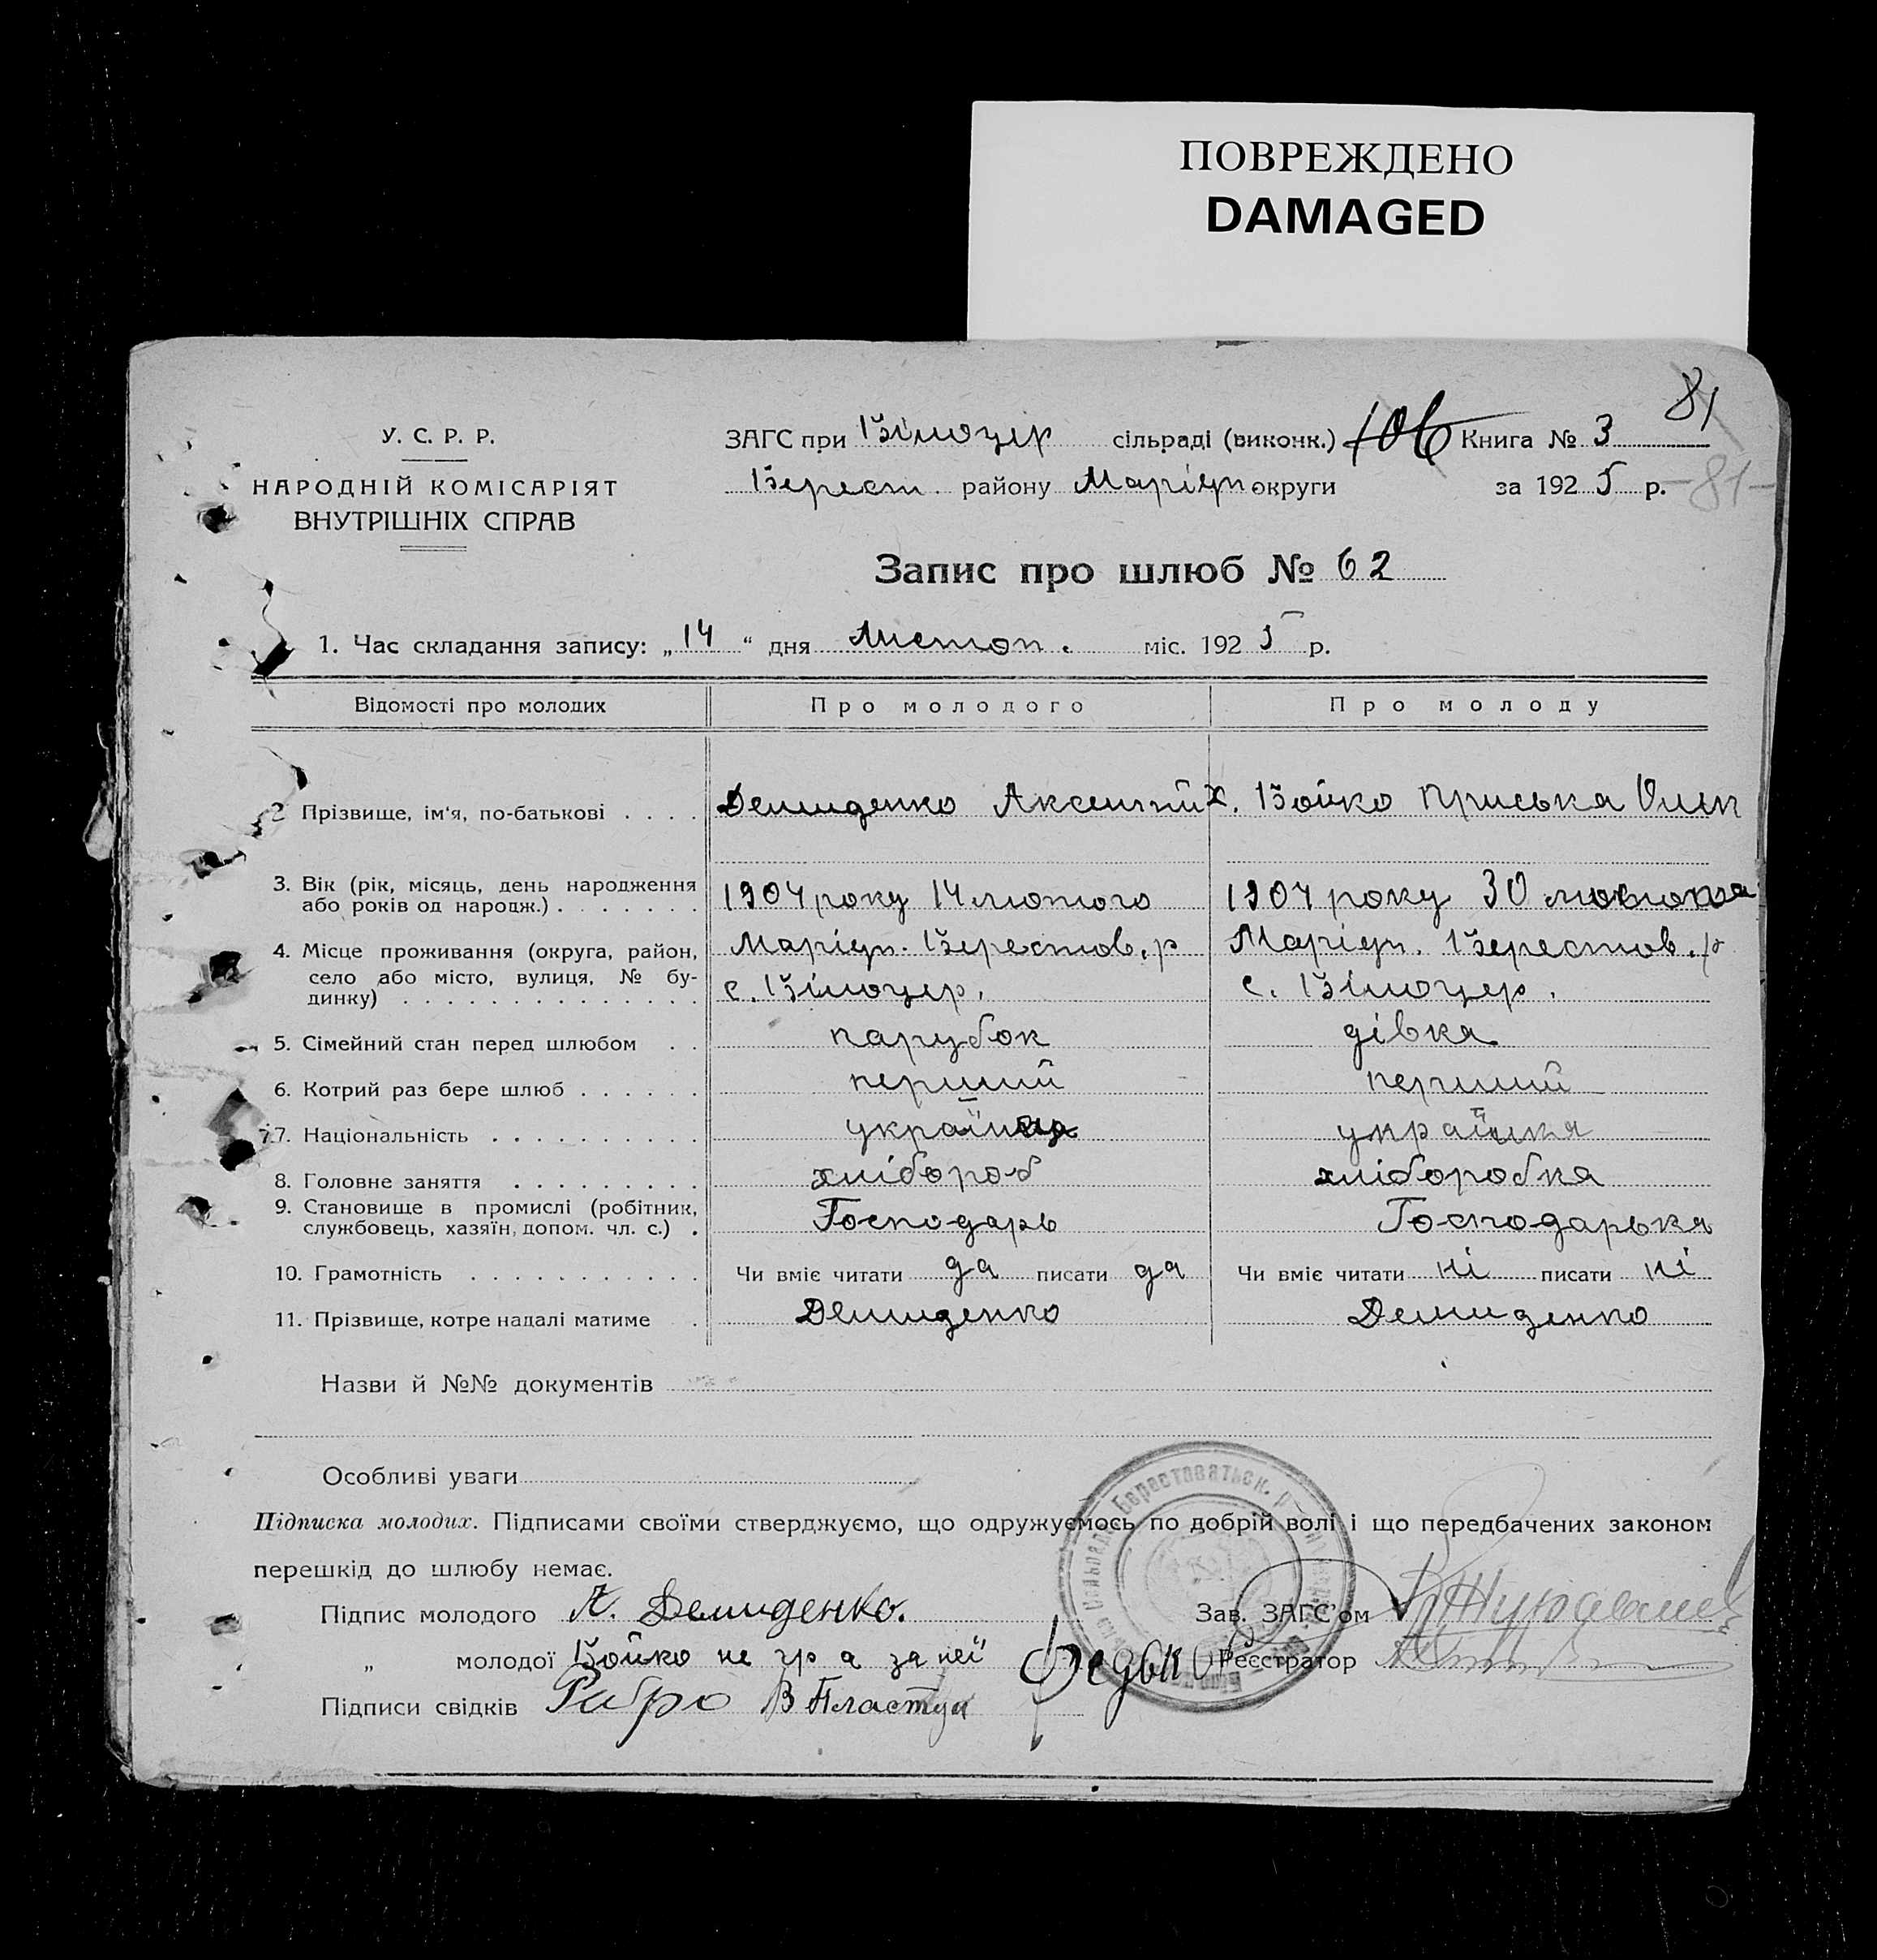 ПОВРЕЖДЕНО
DAMAGED
81
У. С. Р. Р.
НАРОДНІЙ КОМІСАРІЯТ
ВНУТРІШНІХ СПРАВ
ЗАГС при Білоцер сільраді (виконк.) 106 Книга № 3
Берест. району Маріуп округи за 1925 р. -81-
Запис про шлюб № 62
1. Час складання запису: „14“ дня Листоп. міс. 1925 р.
Відомості про молодих Про молодого Про молоду
2 Прізвище, ім'я, по-батькові . . . . Демиденко Аксентій Х. Бойко Приська Олек
3. Вік (рік, місяць, день народження
або років од народж.) . . . . . . . 1904 року 14 лютого 1904 року 30
4. Місце проживання (округа, район, Маріуп. Берестов. р Маріуп. Берестов. р
село або місто, вулиця, № бу-
динку) . . . . . . . . . . . . . . с. Білоцер. с. Білоцер.
5. Сімейний стан перед шлюбом . . парубок дівка
6. Котрий раз бере шлюб . . . . . . перший перший
7. Національність . . . . . . . . . . українец українка
8. Головне заняття . . . . . . . . . хлібороб хліборобка
9. Становище в промислі (робітник,
службовець, хазяїн, допом. чл. с.) . Господарь Господарька
10. Грамотність . . . . . . . . . . . Чи вміє читати да писати да Чи вміє читати ні писати ні
11. Прізвище, котре надалі матиме . Демиденко Демиденко
Назви й №№ документів
Особливі уваги
Підписка молодих. Підписами своїми стверджуємо, що одружуємось по добрій волі і що передбачених законом
перешкід до шлюбу немає.
Підпис молодого А. Демиденко. Зав. ЗАГС'ом
„ молодої Бойко не гр а за неї Федько Реєстратор
Підписи свідків Рибро В Пластун